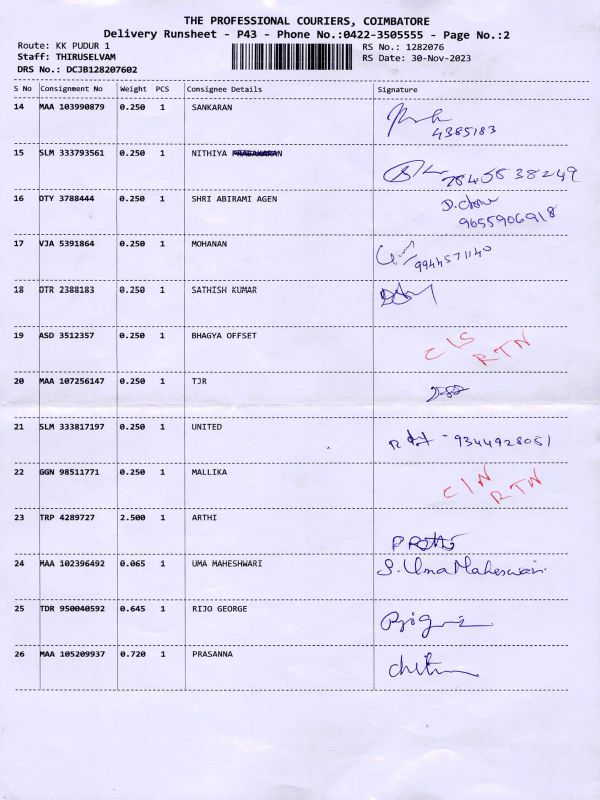 THE PROFESSIONAL COURIERS, COIMBATORE
Delivery Runsheet - P43 - Phone No.:0422-3505555 - Page No.:2
Route: KK PUDUR 1 RS No.: 1282076
Staff: THIRUSELVAM RS Date: 30-Nov-2023
DRS No.: DCJB128207602
S No Consignment No Weight PCS Consignee Details Signature
14 MAA 103990879 0.250 1 SANKARAN
4385183
15 SLM 333793561 0.250 1 NITHIYA PRABAKARAN
16 DTY 3788444 0.250 1 SHRI ABIRAMI AGEN
9655906918
17 VJA 5391864 0.250 1 MOHANAN
9944571140
18 DTR 2388183 0.250 1 SATHISH KUMAR
19 ASD 3512357 0.250 1 BHAGYA OFFSET C/S
RTN
20 MAA 107256147 0.250 1 TJR
21 SLM 333817197 0.250 1 UNITED 9344928051
22 GGN 98511771 0.250 1 MALLIKA C/N
RTN
23 TRP 4289727 2.500 1 ARTHI
24 MAA 102396492 0.065 1 UMA MAHESHWARI S. Uma Maheswari
25 TDR 950040592 0.645 1 RIJO GEORGE
26 MAA 105209937 0.720 1 PRASANNA